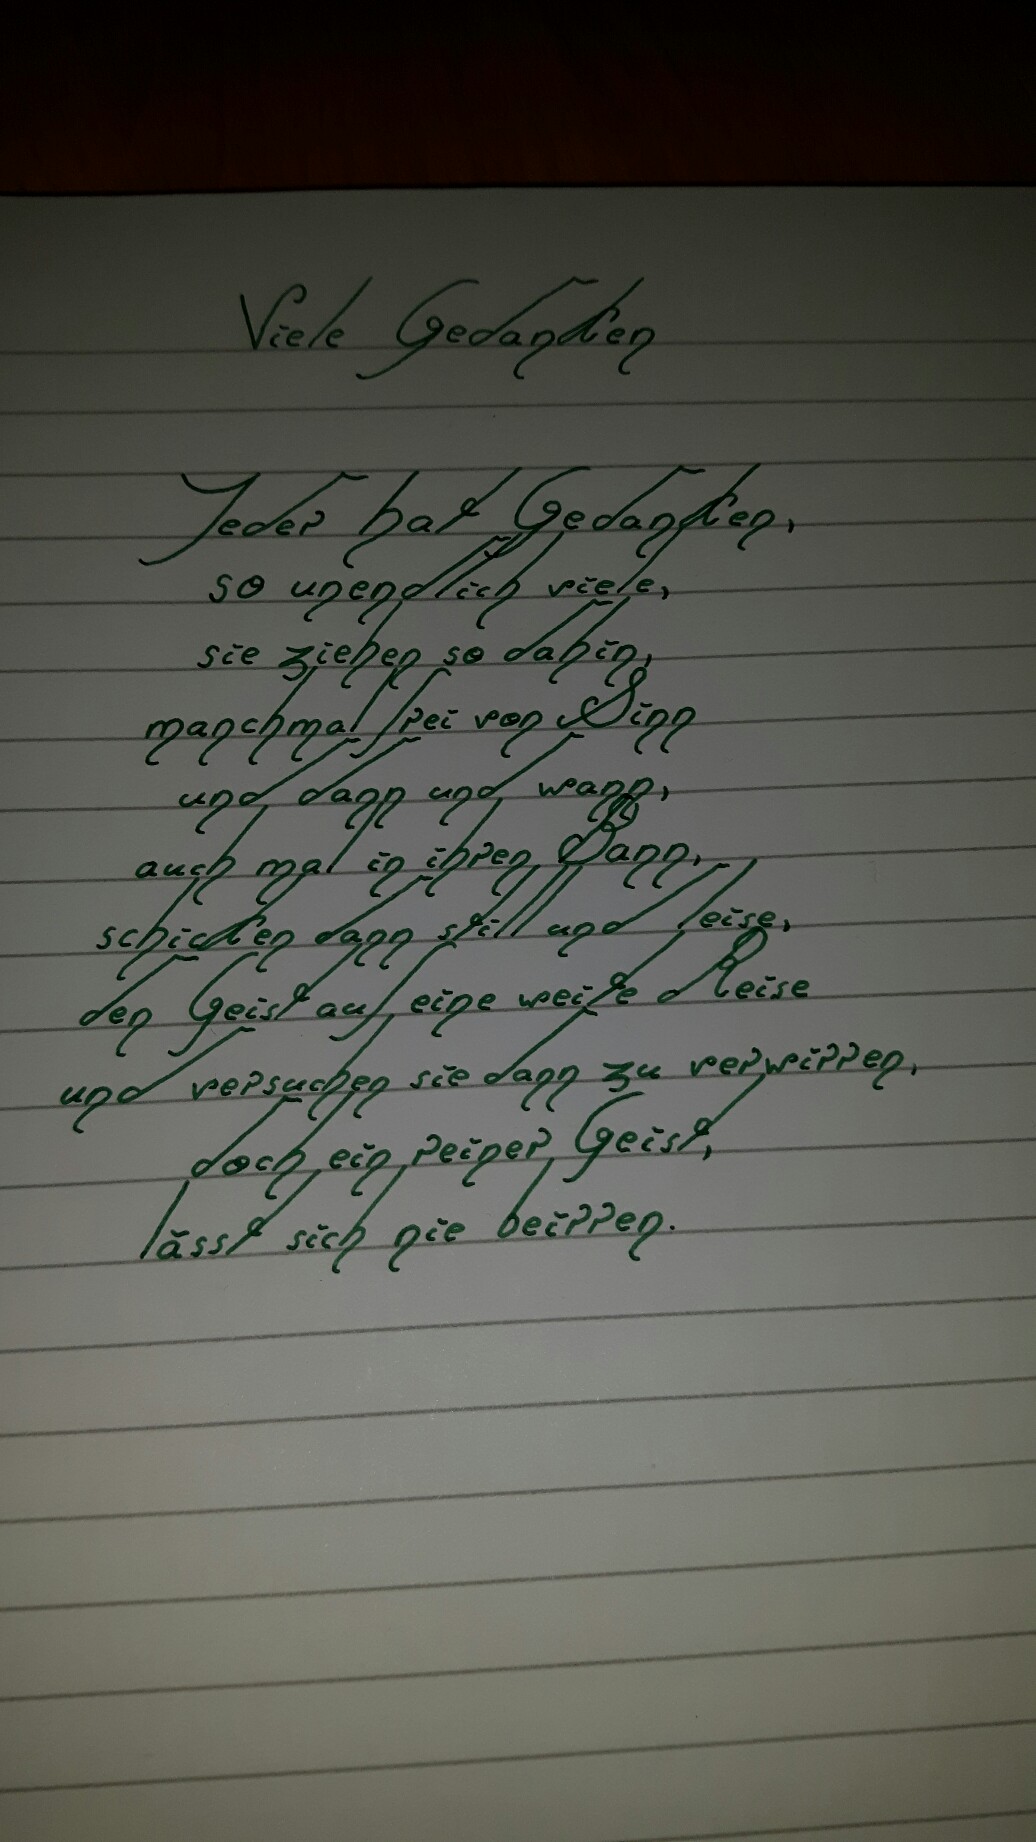 Viele Gedanken
Jeder hat Gedanken,
so unendlich viele,
sie ziehen so dahin,
manchmal frei von Sinn
und dann und wann,
auch mal in ihren Bann,
schicken dann still und leise,
den Geist auf eine weite Reise
und versuchen sie dann zu verwirren,
doch ein reiner Geist,
lässt sich nie beirren.